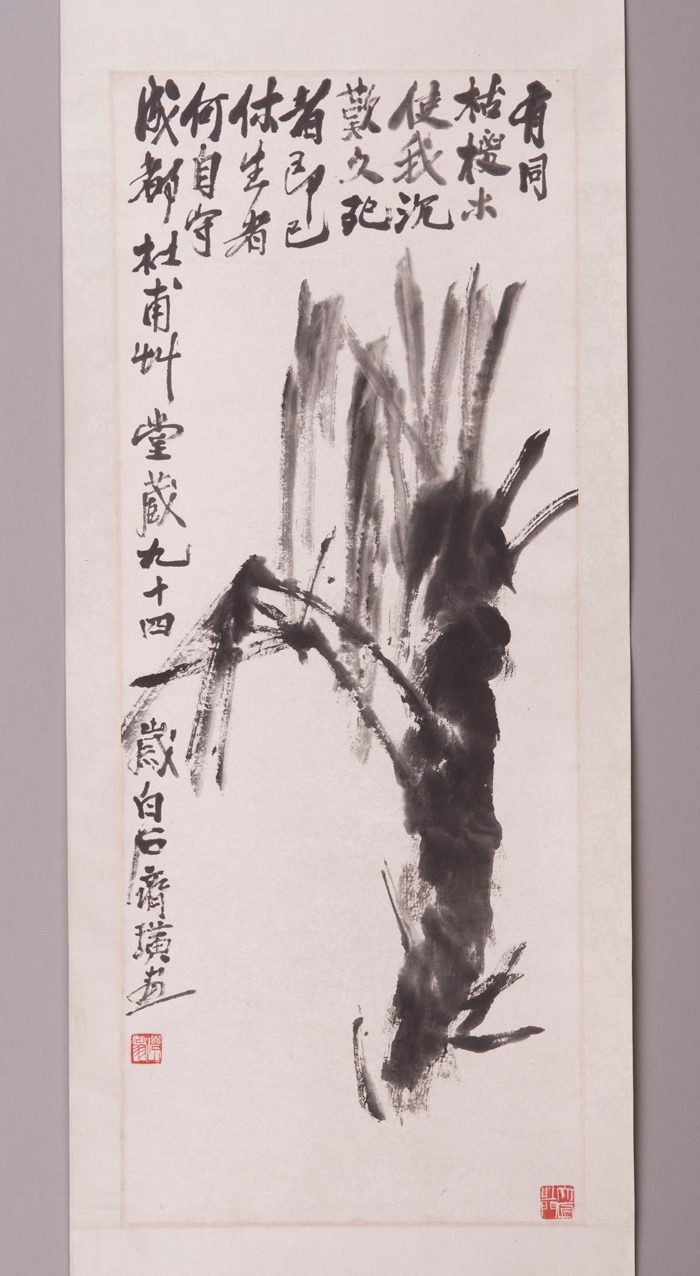 有同
枯椶木
使我沉
歎久死
者即已
休生者
何自守
成都杜甫艸堂藏九十四歲白石齊璜畫